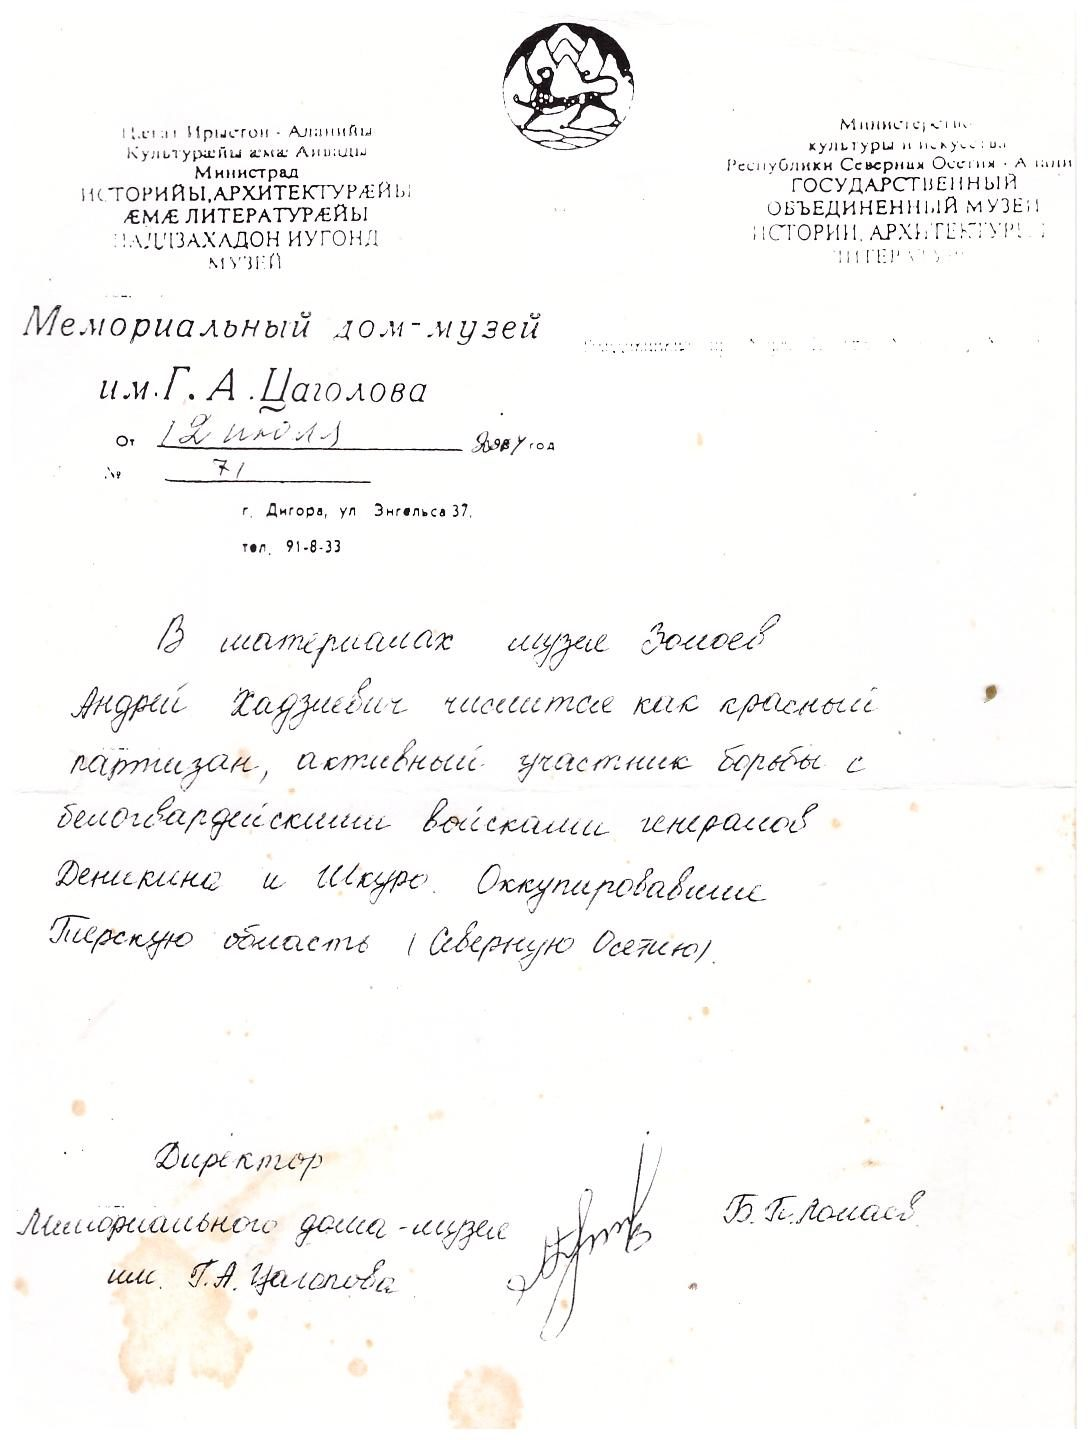 Цӕгат Ирыстон - Аланийы
Культурӕйы ӕмӕ Аивады
Министрад
ИСТОРИЙЫ, АРХИТЕКТУРӔЙЫ
ӔМӔ ЛИТЕРАТУРӔЙЫ
ПАДДЗАХАДОН ИУГОНД
МУЗЕЙ
Министерство
культуры и искусства
Республики Северная Осетия - Алани
ГОСУДАРСТВЕННЫЙ
ОБЪЕДИНЕННЫЙ МУЗЕЙ
ИСТОРИИ, АРХИТЕКТУРЫ И
ЛИТЕРАТУРЫ
Мемориальный дом-музей
им. Г. А. Цаголова
От 12 июля год
№ 71
г. Дигора, ул Энгельса 37.
тел. 91-8-33
В материалах музея Золоев
Андрей Хадзиевич числится как красный
партизан, активный участник борьбы с
белогвардейскими войсками генералов
Деникина и Шкуро. Оккупировавшие
Терскую область (Северную Осетию).
Директор
Мемориального дома-музея
им. Г. А. Цаголова
Б. П. Лолаев